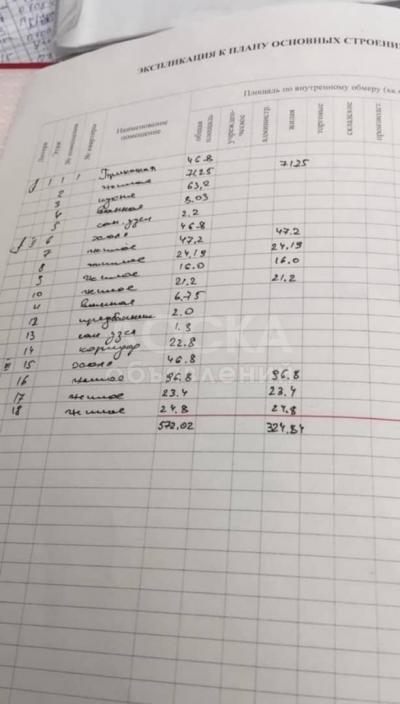 ЭКСПЛИКАЦИЯ К ПЛАНУ ОСНОВНЫХ СТРОЕНИ
Площадь по внутреннему обмеру (кв.
Литера Этаж № помещения № квартиры Наименование помещение общая площадь учрежден- ческое администр. жилая торговые складские производст.
1 1 1 46.8
2 жилая 71.25 71.25
3 кухня 63,2
4 ванная 8.03
5 сан. узел 2.2
II 6 холл 46.8
7 жилое 47.2 47.2
8 жилое 24,19 24,19
9 жилое 16.0 16.0
10 жилое 21,2 21,2
11 ванная 6.75
12 2.0
13 сан узел 1.3
14 коридор 22.8
III 15 холл 46.8
16 жилое 96.8 96.8
17 жилое 23.4 23.4
18 жилое 24.8 24.8
572.02 324.84
ДОСКА
объявлений